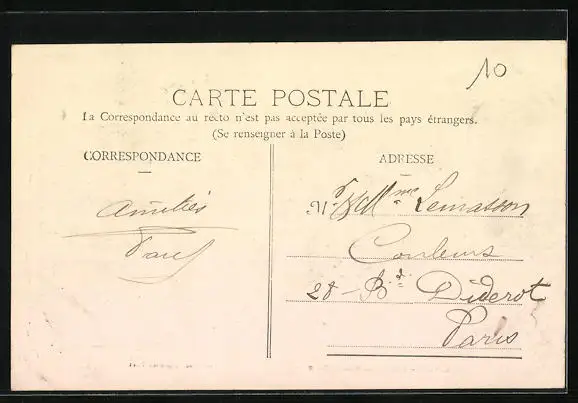 10
CARTE POSTALE
La Correspondance au recto n'est pas acceptée par tous les pays étrangers.
(Se renseigner à la Poste)
CORRESPONDANCE
ADRESSE
Amitiés
Paul
Mr & Mme Lemasson
Couleurs
28 - Bd. Diderot
Paris